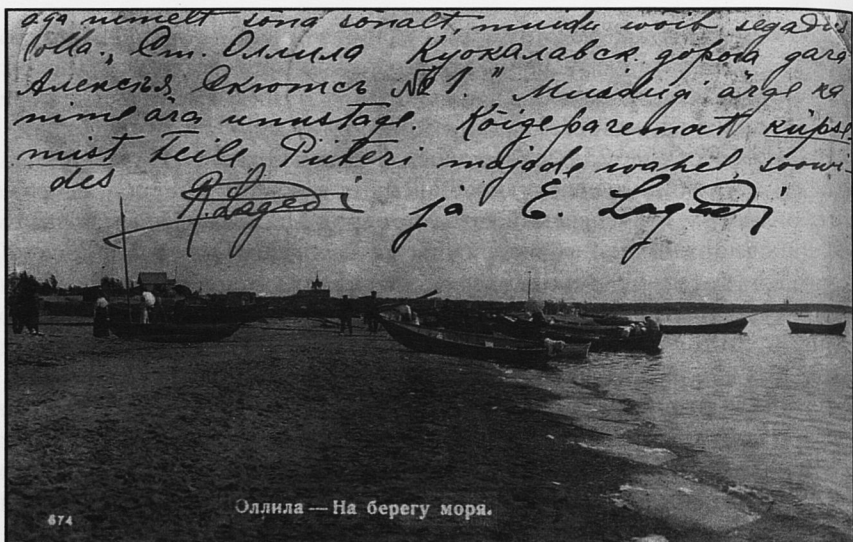 aga nimelt sõna sõnalt, muidu wõib segadus
olla. „Ст. Оллила Куокалавск. дорога дача
Алексѣя Скютсъ № 1." Muidugi ärge ka
nime ära unustage. Kõigeparemat küpse-
mist Teile Piiteri majade wahel, soowi-
des
R. Lagedi ja E. Lagedi
Оллила — На берегу моря.
674